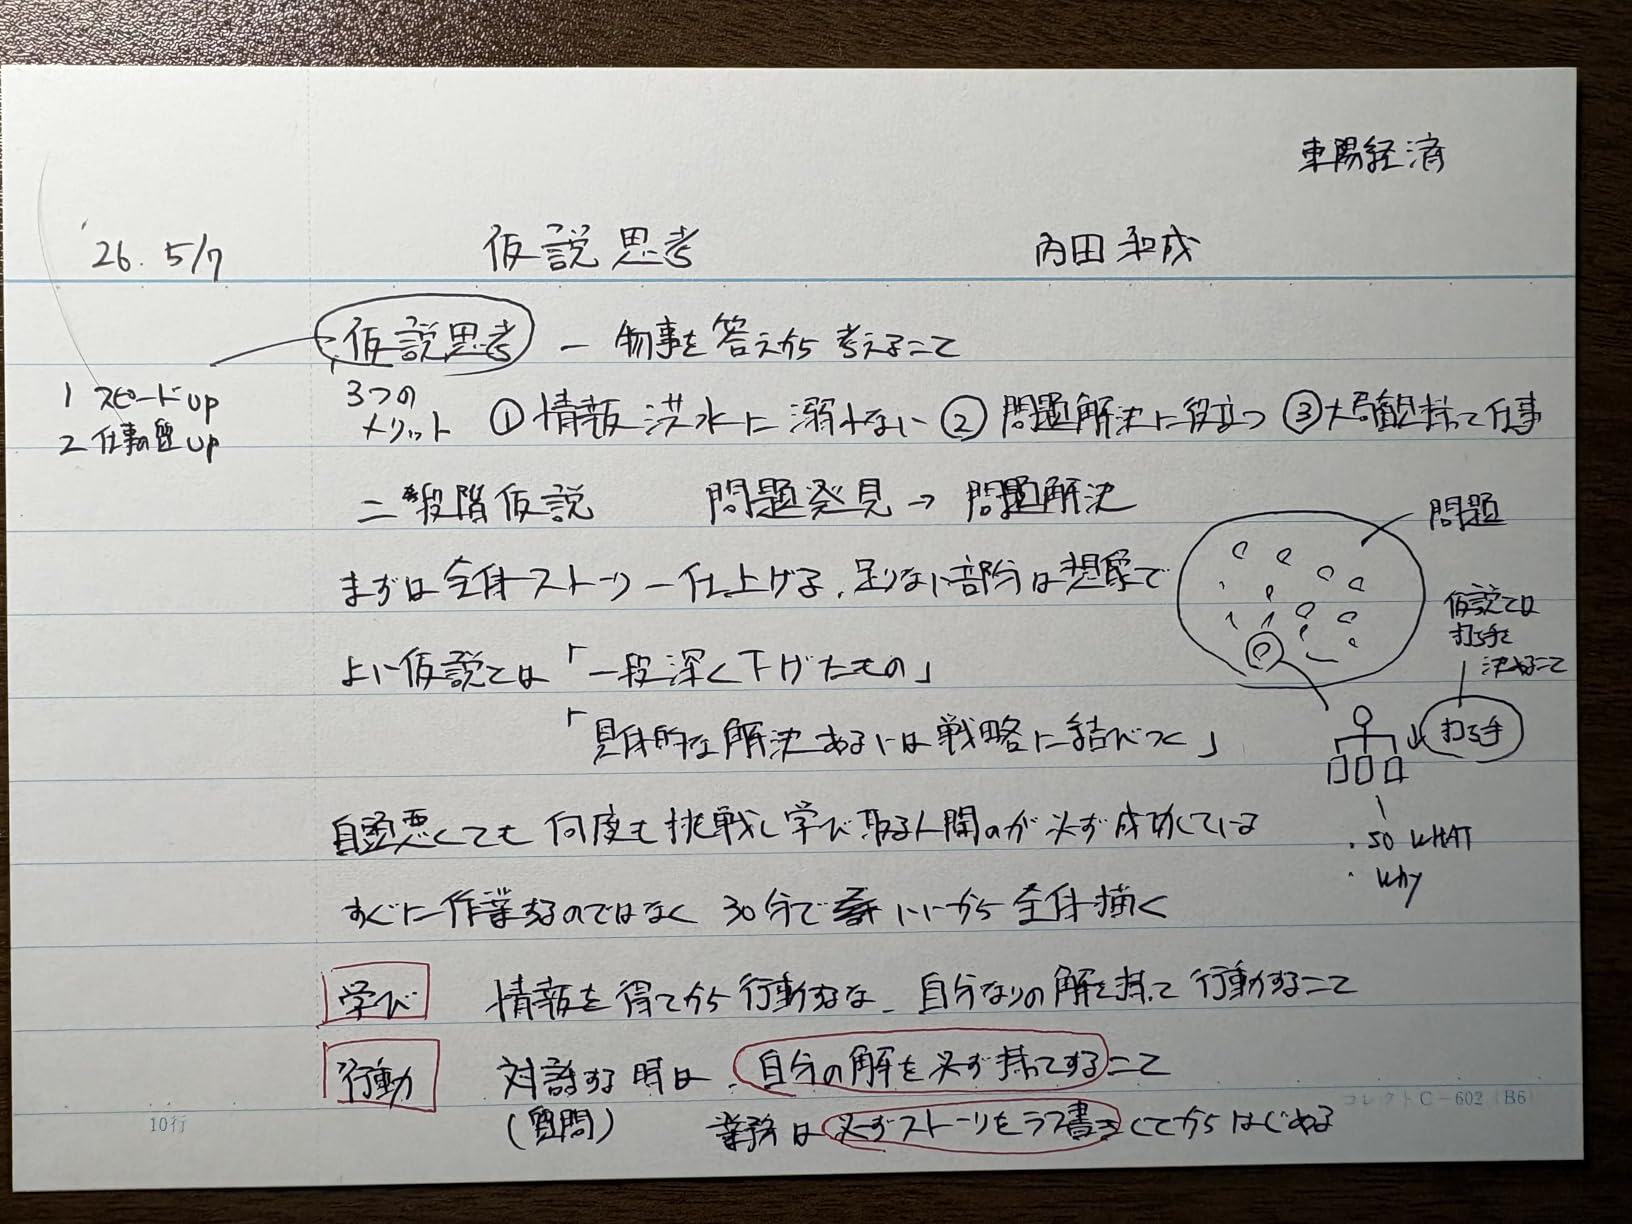 東陽経済
'26. 5/7 仮説思考 内田和成
仮説思考 ー 物事を答えから考えること
1 スピードup
2 仕事の質up
3つのメリット ①情報洪水に溺れない ②問題解決に役立つ ③大局観持って仕事
二段階仮説 問題発見→問題解決
問題
まずは全体ストーリー仕上げる、足りない部分は想像で
仮説とは
打ち手を
決めること
よい仮説とは「一段深く下げたもの」
「具体的な解決あるいは戦略に結びつく」
打つ手
自頭悪くても何度も挑戦し学び取る人間のが必ず成功している
・SO WHAT
・Why
すぐに作業するのではなく 30分で いいから全体描く
学び 情報を得てから行動するな、自分なりの解を持って行動すること
行動 対話する時は、自分の解を必ず持ってすること
(質問) 業務は必ずストーリーをラフ書きしてからはじめる
10行
コレクトC-602(B6)